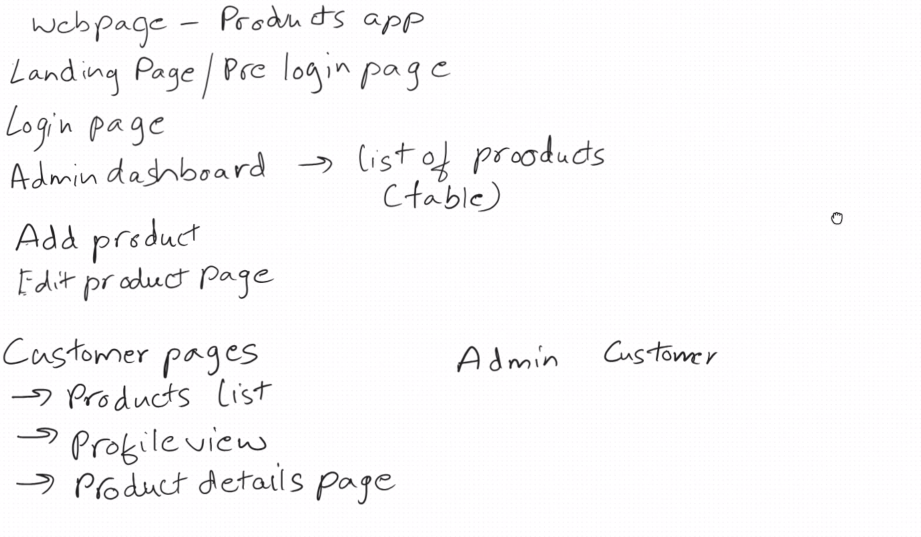 webpage - Products app
Landing Page/Pre login page
Login page
Admin dashboard → list of prooducts
(table)
Add product
Edit product page
Customer pages
Admin Customer
→ Products list
→ Profile view
→ Product details page